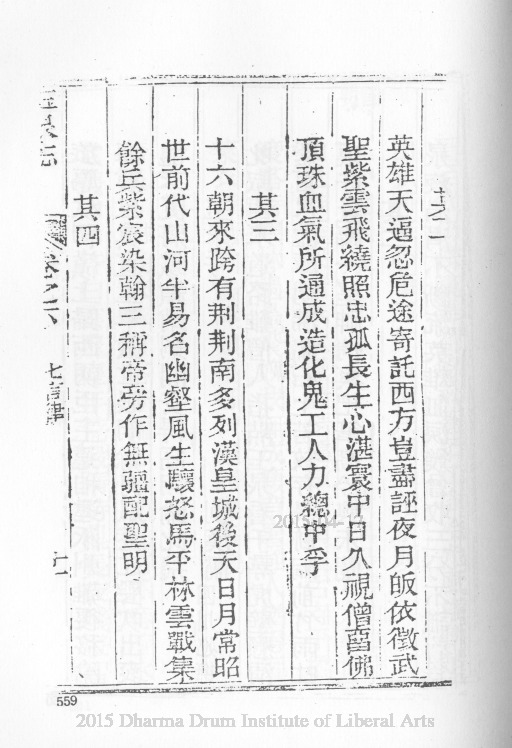 其二
英雄天逼忽危途寄託西方豈盡誣夜月皈依徵武
聖紫雲飛繞照忠孤長生心湛寰中日久視僧留佛
頂珠血氣所通成造化鬼工人力總中孚
其三
十六朝來跨有荆荆南多列漢皇城後天日月常昭
世前代山河半易名幽壑風生驤怒馬平林雲戰集
餘兵紫宸染翰三稱帝旁作無疆配聖明
其四
卷之六 七言律
559
2015 Dharma Drum Institute of Liberal Arts